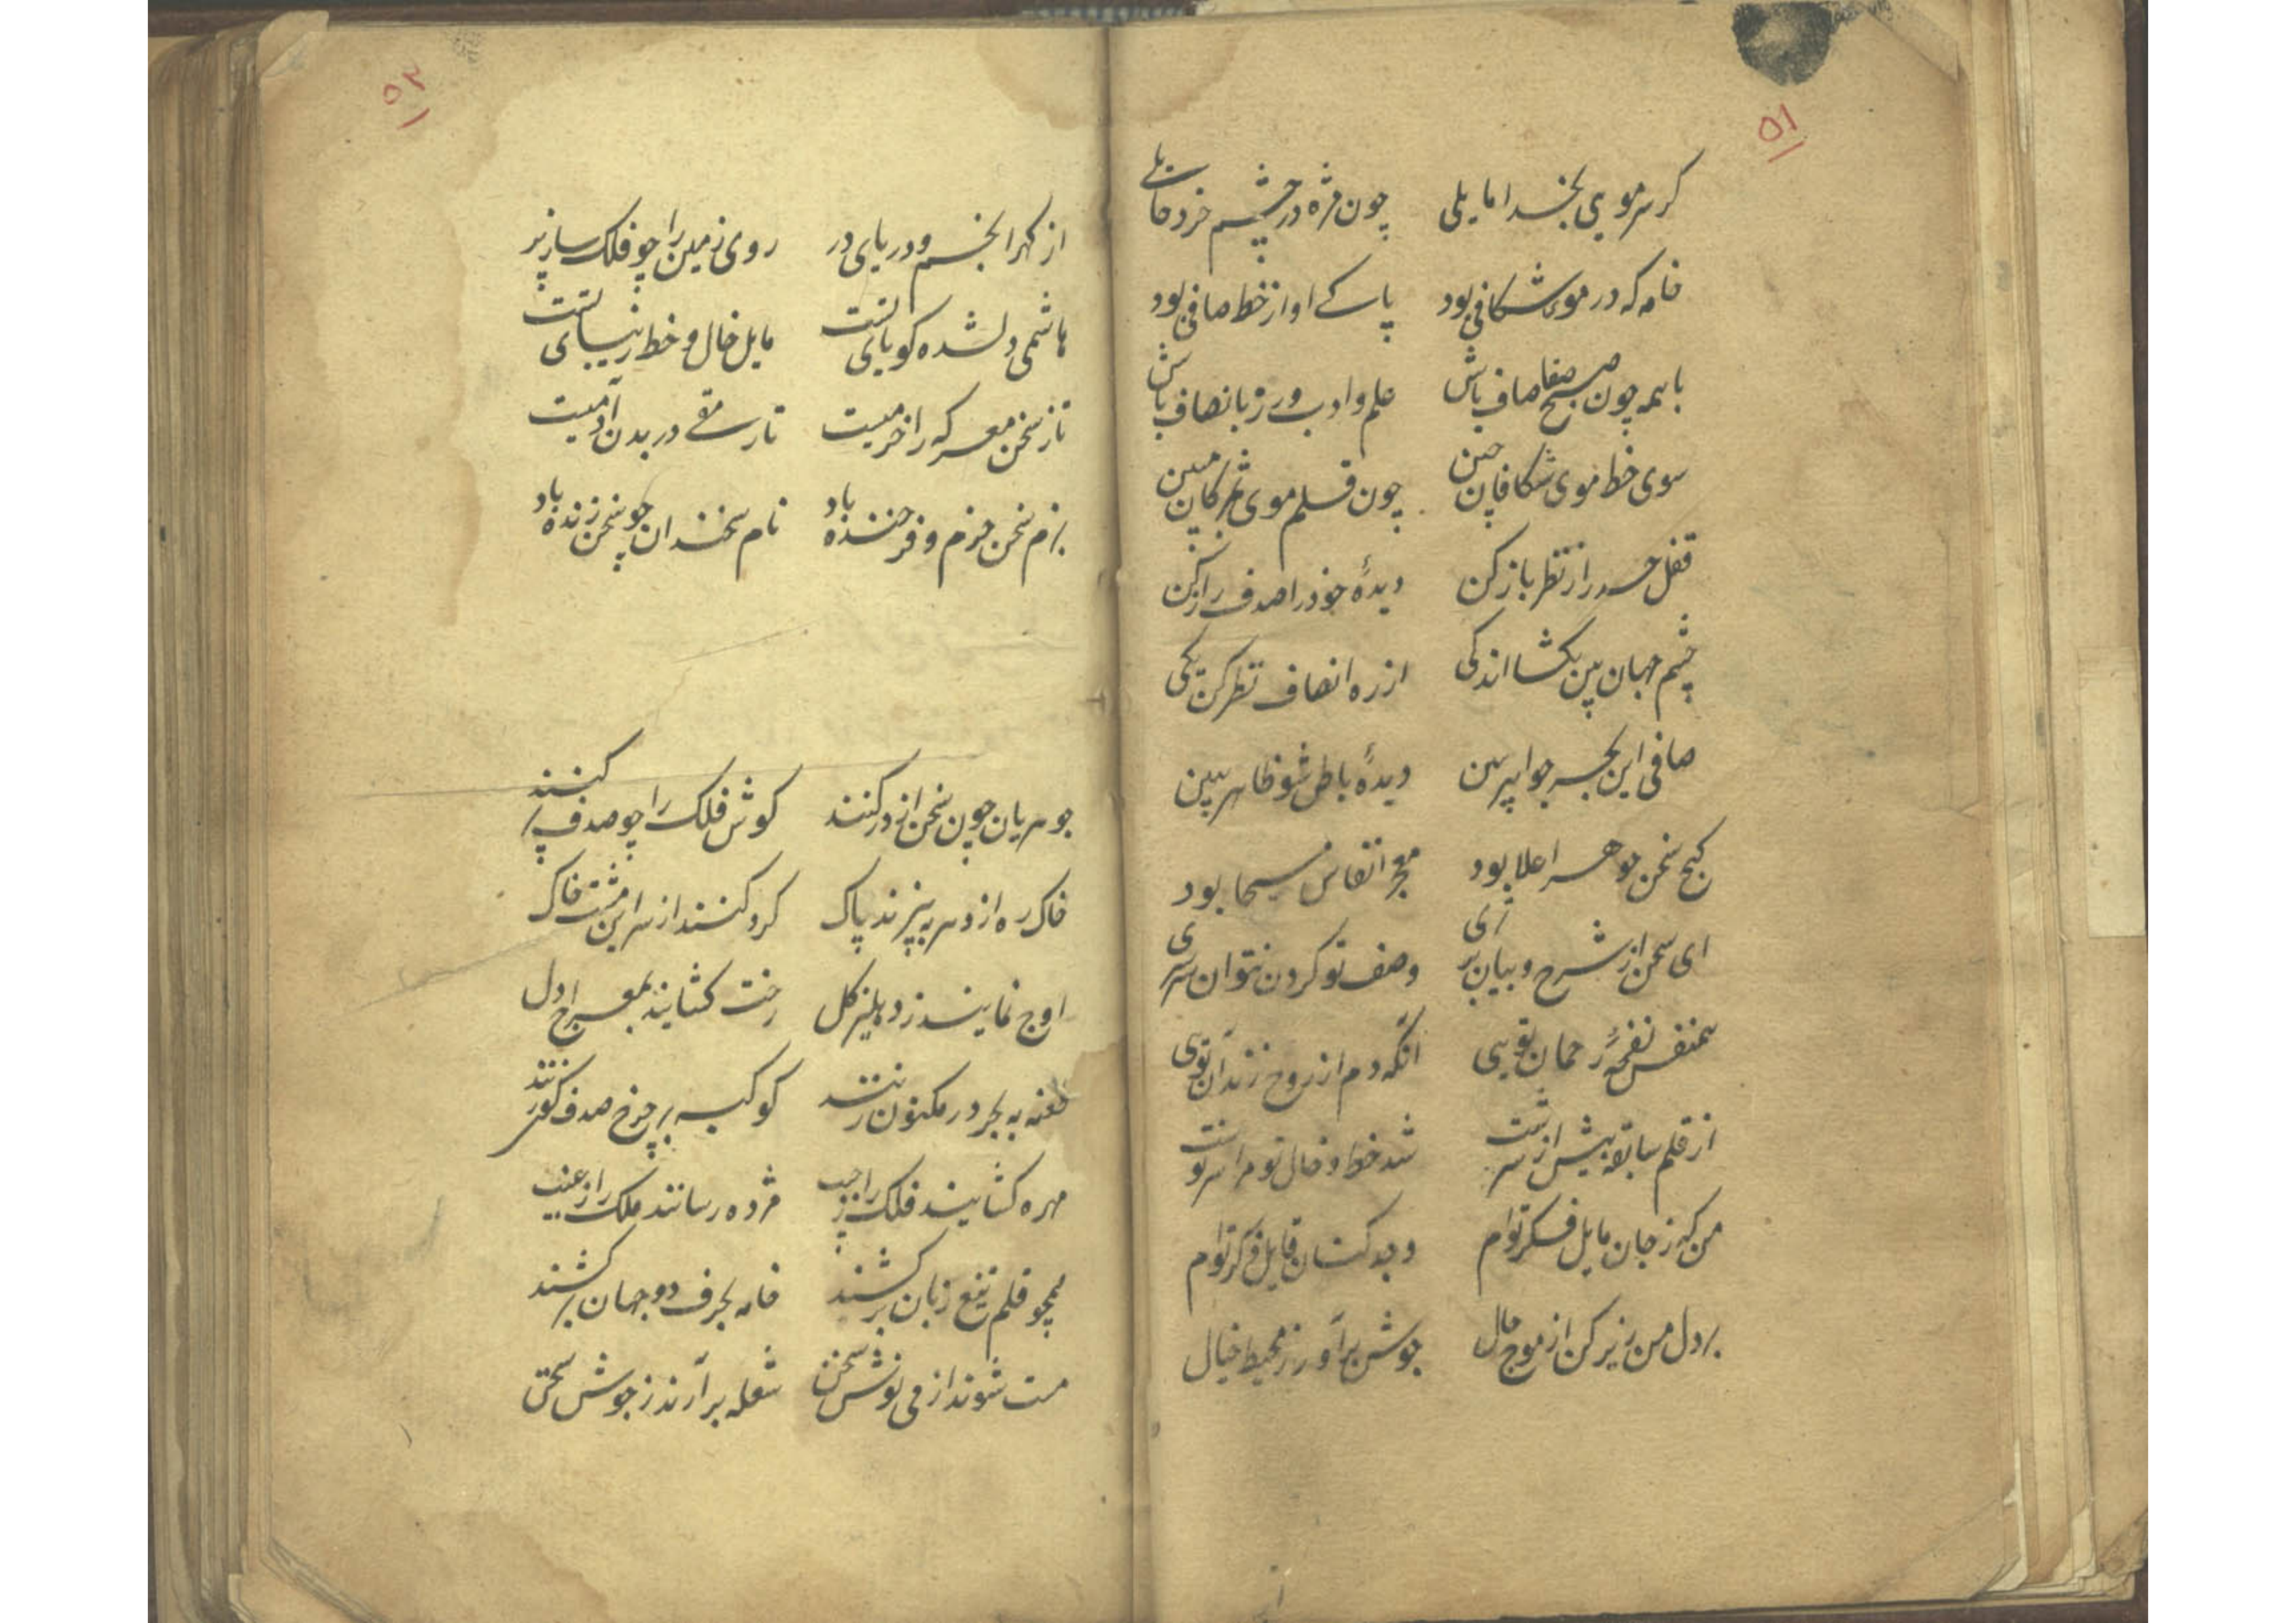 ۵۱
کر سر مویی بخدا مایلی چون مژه در چشم خرد حایلی
خامه که در موی شکافی بود پاکی او از خط صافی بود
با همه چون صبح صفا صاف باش علم و ادب ورز بانصاف باش
سوی خط موی شکافان چین چون قلم موی بمژکان مبین
قفل حسد را ز نظر باز کن دیدهٔ خود را صدف راز کن
چشم جهان بین بکشا اندکی از ره انصاف نظر کن یکی
صافی این بحر جواهر ببین دیدهٔ باطن شو ظاهر مبین
کنج سخن جوهر اعلا بود معجز انفاس مسیحا بود
ای سخن از شرح و بیان برتری وصف تو کردن نتوان سرسری
همنفس نفحهٔ رحمان تویی آنکه دم از روح زند آن تویی
از قلم سابقه پیش از سرشت شد خط و خال تو مرا سرنوشت
من که ز جان مایل فکر توام وجد کنان قایل ذکر توام
بر دل من ریز کن از موج حال جوش برآور ز محیط خیال
۵۲
از کهر انجم و دریای در روی زمین را چو فلک ساز پر
هاشمی دلشده کویای تست مایل خال و خط زیبای تست
تا ز سخن معرکه را خرمیست تا رمقی در بدن آدمیست
بزم سخن خرم و فرخنده باد نام سخندان چو سخن زنده باد
جوهریان چون سخن از در کنند کوش فلک را چو صدف پر کنند
خاک ره از دهر به بیزند پاک کرد کنند از سر این مشت خاک
اوج نمایند ز دهلیز کل رخت کشانید بمعراج دل
طعنه به بحر در مکنون زنند کوکبه بر چرخ صدف کون زنند
مهره کشایند فلک را ز جیب مژده رسانند ملک را ز غیب
همچو قلم تیغ زبان برکشند خامه بحرف دو جهان برکشند
مست شوند از می نوش سخن شعله برآرند ز جوش سخن